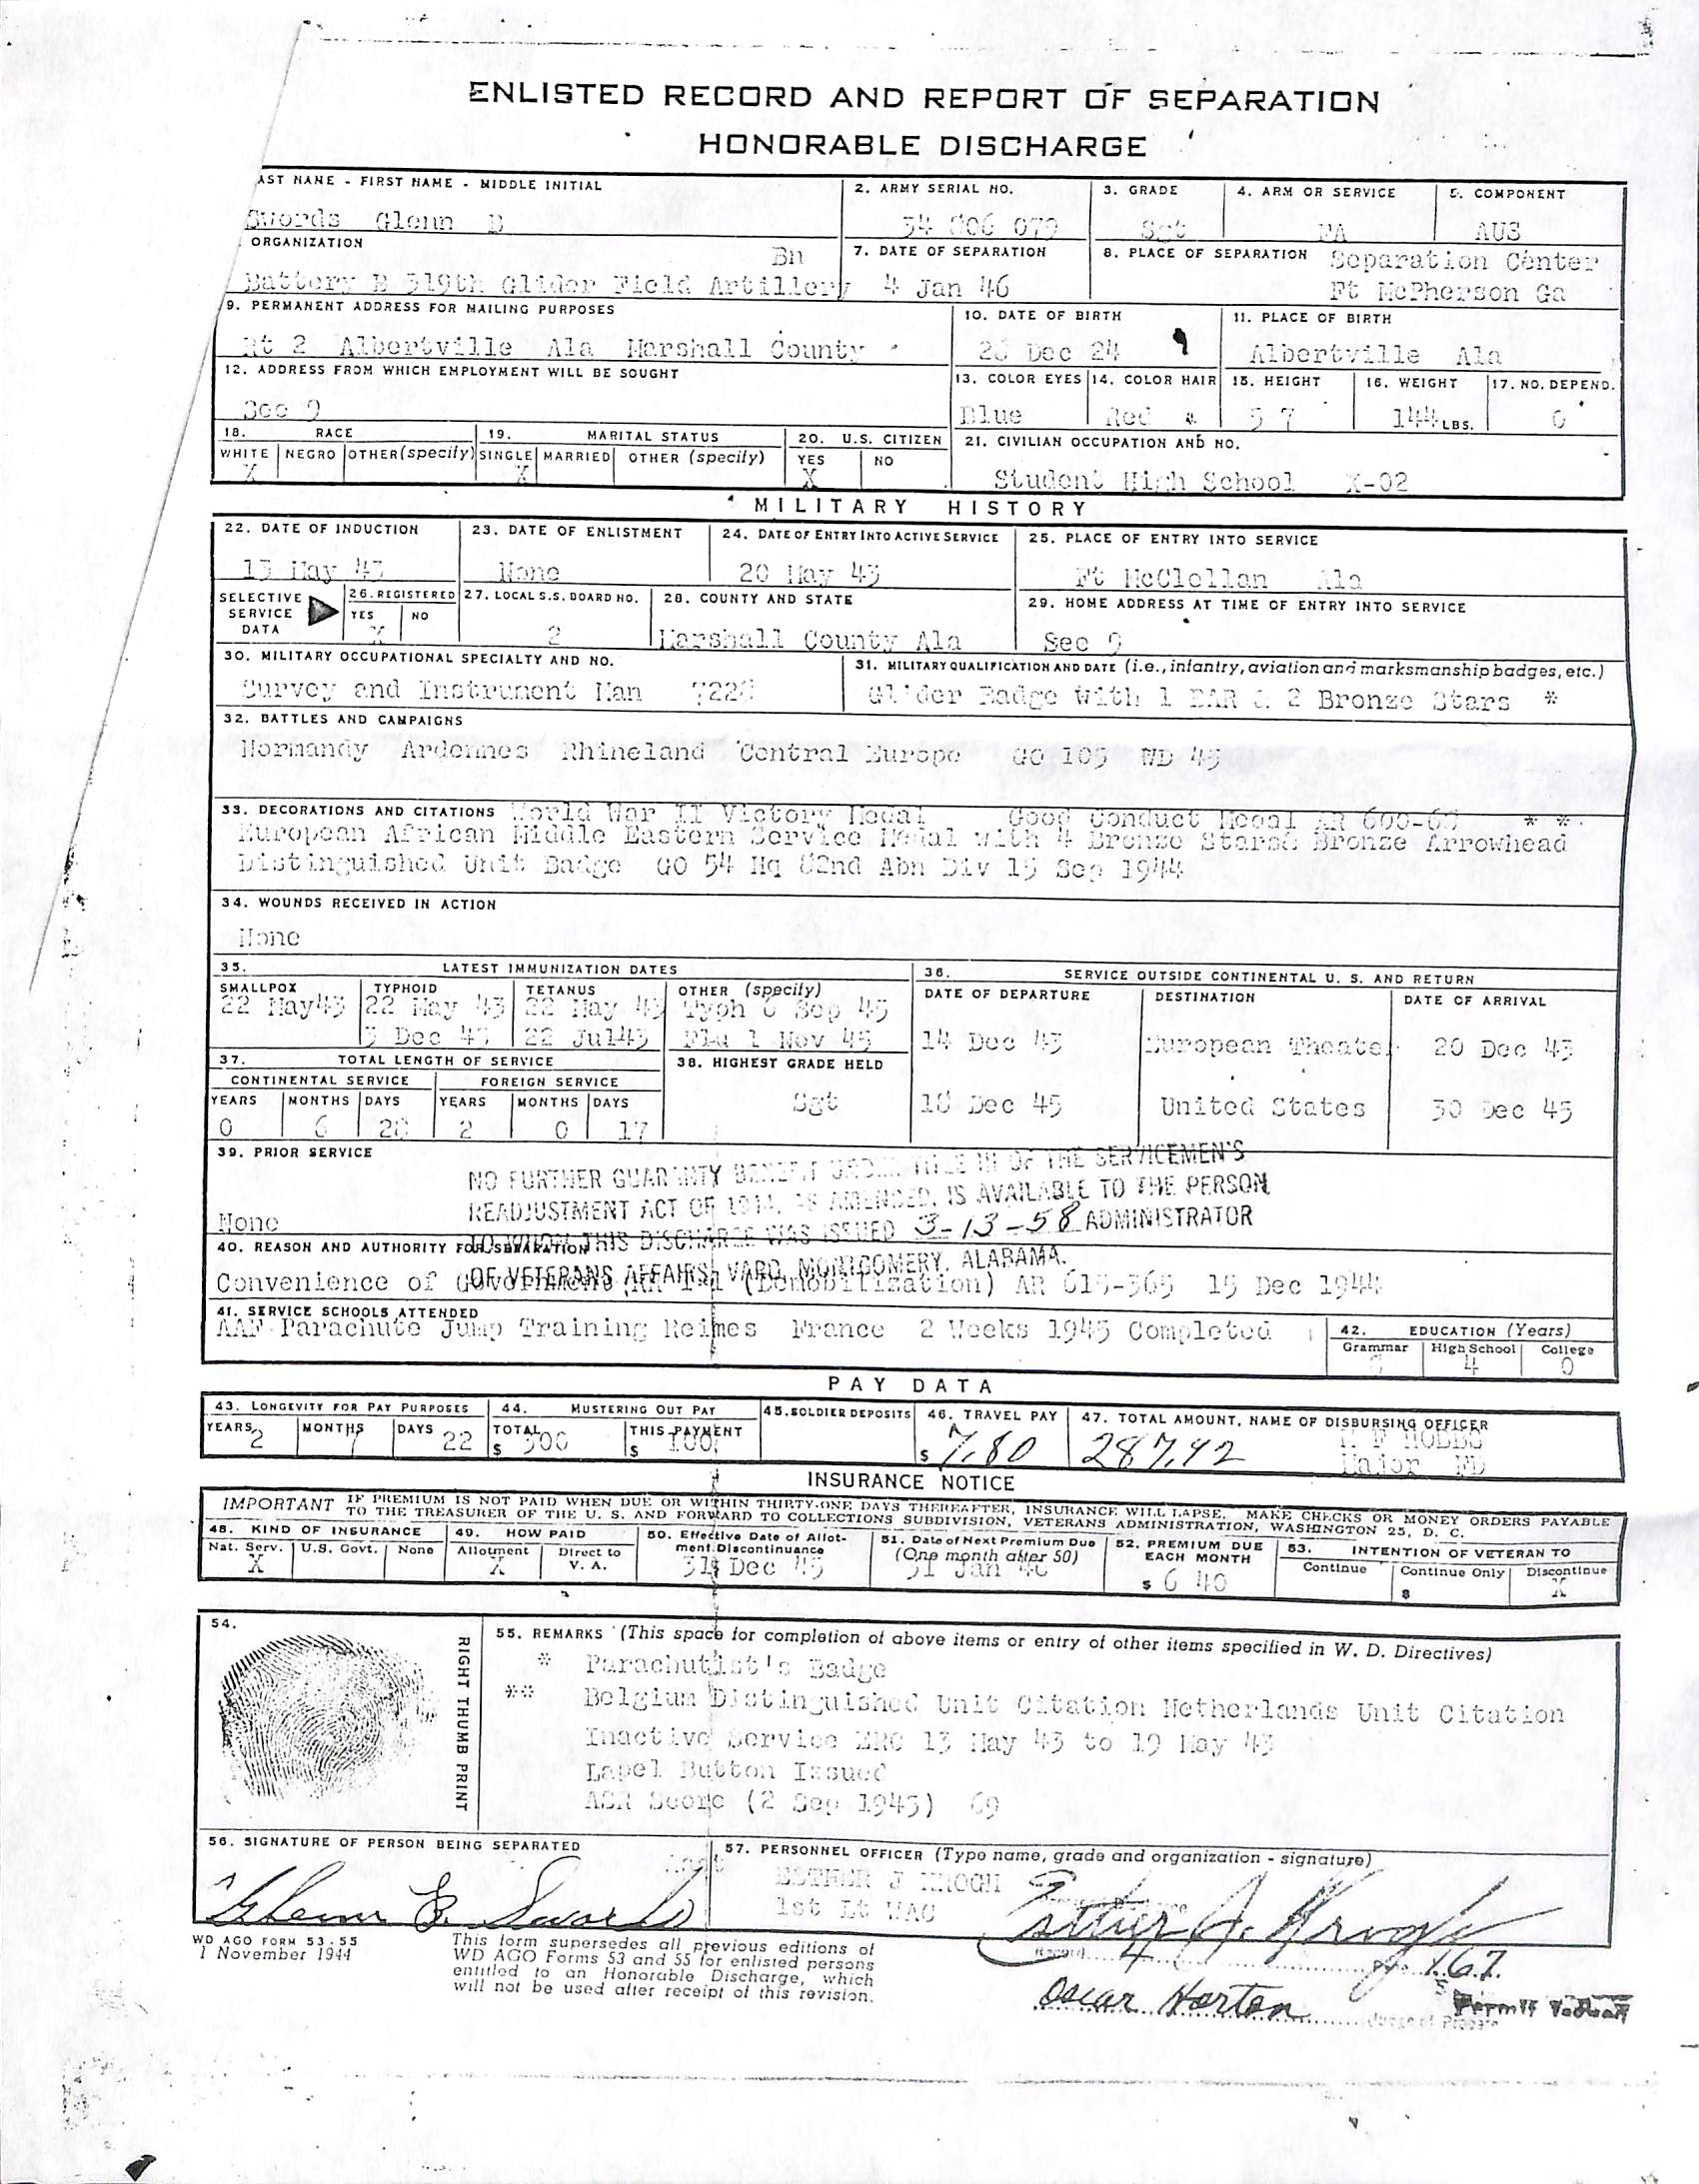 ENLISTED RECORD AND REPORT OF SEPARATION
HONORABLE DISCHARGE
AST NAME - FIRST NAME - MIDDLE INITIAL
Swords Glenn B
2. ARMY SERIAL NO.
3. GRADE
Sgt
4. ARM OR SERVICE
FA
5. COMPONENT
AUS
ORGANIZATION
Bn
Battery B 319th Glider Field Artillery
7. DATE OF SEPARATION
4 Jan 46
8. PLACE OF SEPARATION
Separation Center
Ft McPherson Ga
9. PERMANENT ADDRESS FOR MAILING PURPOSES
Rt 2 Albertville Ala Marshall County
10. DATE OF BIRTH
Dec 24
11. PLACE OF BIRTH
Albertville Ala
12. ADDRESS FROM WHICH EMPLOYMENT WILL BE SOUGHT
See 9
13. COLOR EYES
Blue
14. COLOR HAIR
Red
15. HEIGHT
5 7
16. WEIGHT
144 LBS.
17. NO. DEPEND.
0
18. RACE
WHITE NEGRO OTHER (specify)
X
19. MARITAL STATUS
SINGLE MARRIED OTHER (specify)
X
20. U.S. CITIZEN
YES NO
X
21. CIVILIAN OCCUPATION AND NO.
Student High School X-02
MILITARY HISTORY
22. DATE OF INDUCTION
13 May 43
23. DATE OF ENLISTMENT
None
24. DATE OF ENTRY INTO ACTIVE SERVICE
20 May 43
25. PLACE OF ENTRY INTO SERVICE
Ft McClellan Ala
SELECTIVE SERVICE DATA
26. REGISTERED
YES NO
X
27. LOCAL S.S. BOARD NO.
2
28. COUNTY AND STATE
Marshall County Ala
29. HOME ADDRESS AT TIME OF ENTRY INTO SERVICE
See 9
30. MILITARY OCCUPATIONAL SPECIALTY AND NO.
Survey and Instrument Man
31. MILITARY QUALIFICATION AND DATE (i.e., infantry, aviation and marksmanship badges, etc.)
Glider Badge with 1 BAR & 2 Bronze Stars *
32. BATTLES AND CAMPAIGNS
Normandy Ardennes Rhineland Central Europe GO 105 WD 45
33. DECORATIONS AND CITATIONS World War II Victory Medal Good Conduct Medal AR 600-68 * *
European African Middle Eastern Service Medal with 4 Bronze Stars& Bronze Arrowhead
Distinguished Unit Badge GO 54 Hq 82nd Abn Div 15 Sep 1944
34. WOUNDS RECEIVED IN ACTION
None
35. LATEST IMMUNIZATION DATES
SMALLPOX TYPHOID TETANUS OTHER (specify)
22 May43 22 May 43 22 May 43 Typh 8 Sep 45
3 Dec 22 Jul43 Flu 1 Nov 45
36. SERVICE OUTSIDE CONTINENTAL U. S. AND RETURN
DATE OF DEPARTURE DESTINATION DATE OF ARRIVAL
14 Dec 43 European Theater 20 Dec 43
18 Dec 45 United States 30 Dec 45
37. TOTAL LENGTH OF SERVICE
CONTINENTAL SERVICE FOREIGN SERVICE
YEARS MONTHS DAYS YEARS MONTHS DAYS
0 6 28 2 0 17
38. HIGHEST GRADE HELD
Sgt
39. PRIOR SERVICE
None
NO FURTHER GUARANTY BENEFIT UNDER TITLE III OF THE SERVICEMEN'S
READJUSTMENT ACT OF 1944, AS AMENDED, IS AVAILABLE TO THE PERSON
TO WHOM THIS DISCHARGE WAS ISSUED 3-13-58 ADMINISTRATOR
OF VETERANS AFFAIRS, VARO, MONTGOMERY, ALABAMA.
40. REASON AND AUTHORITY FOR SEPARATION
Convenience of Government RR 1-1 (Demobilization) AR 615-365 15 Dec 1944
41. SERVICE SCHOOLS ATTENDED
AAF Parachute Jump Training Reimes France 2 Weeks 1945 Completed
42. EDUCATION (Years)
Grammar High School College
4 0
PAY DATA
43. LONGEVITY FOR PAY PURPOSES
YEARS 2 MONTHS 7 DAYS 22
44. MUSTERING OUT PAY
TOTAL $ 300 THIS PAYMENT $ 100
45. SOLDIER DEPOSITS
46. TRAVEL PAY
$ 7.80
47. TOTAL AMOUNT, NAME OF DISBURSING OFFICER
287.92 HOBBS
Major FD
INSURANCE NOTICE
IMPORTANT IF PREMIUM IS NOT PAID WHEN DUE OR WITHIN THIRTY-ONE DAYS THEREAFTER, INSURANCE WILL LAPSE. MAKE CHECKS OR MONEY ORDERS PAYABLE
TO THE TREASURER OF THE U. S. AND FORWARD TO COLLECTIONS SUBDIVISION, VETERANS ADMINISTRATION, WASHINGTON 25, D. C.
48. KIND OF INSURANCE
Nat. Serv. U.S. Govt. None
X
49. HOW PAID
Allotment Direct to V. A.
X
50. Effective Date of Allotment Discontinuance
31 Dec 45
51. Date of Next Premium Due (One month after 50)
31 Jan 46
52. PREMIUM DUE EACH MONTH
$ 6 40
53. INTENTION OF VETERAN TO
Continue Continue Only Discontinue
$ X
54.
RIGHT THUMB PRINT
55. REMARKS (This space for completion of above items or entry of other items specified in W. D. Directives)
* Parachutist's Badge
** Belgium Distinguished Unit Citation Netherlands Unit Citation
Inactive Service ERC 13 May 43 to 19 May 43
Lapel Button Issued
ASR Score (2 Sep 1945) 69
56. SIGNATURE OF PERSON BEING SEPARATED
Glenn B. Swords
57. PERSONNEL OFFICER (Type name, grade and organization - signature)
ESTHER J KROGH
1st Lt WAC
Esther J. Krogh
WD AGO FORM 53-55
1 November 1944
This form supersedes all previous editions of
WD AGO Forms 53 and 55 for enlisted persons
entitled to an Honorable Discharge, which
will not be used after receipt of this revision.
Record 4 Page 167.
Oscar Horton
Judge of Probate